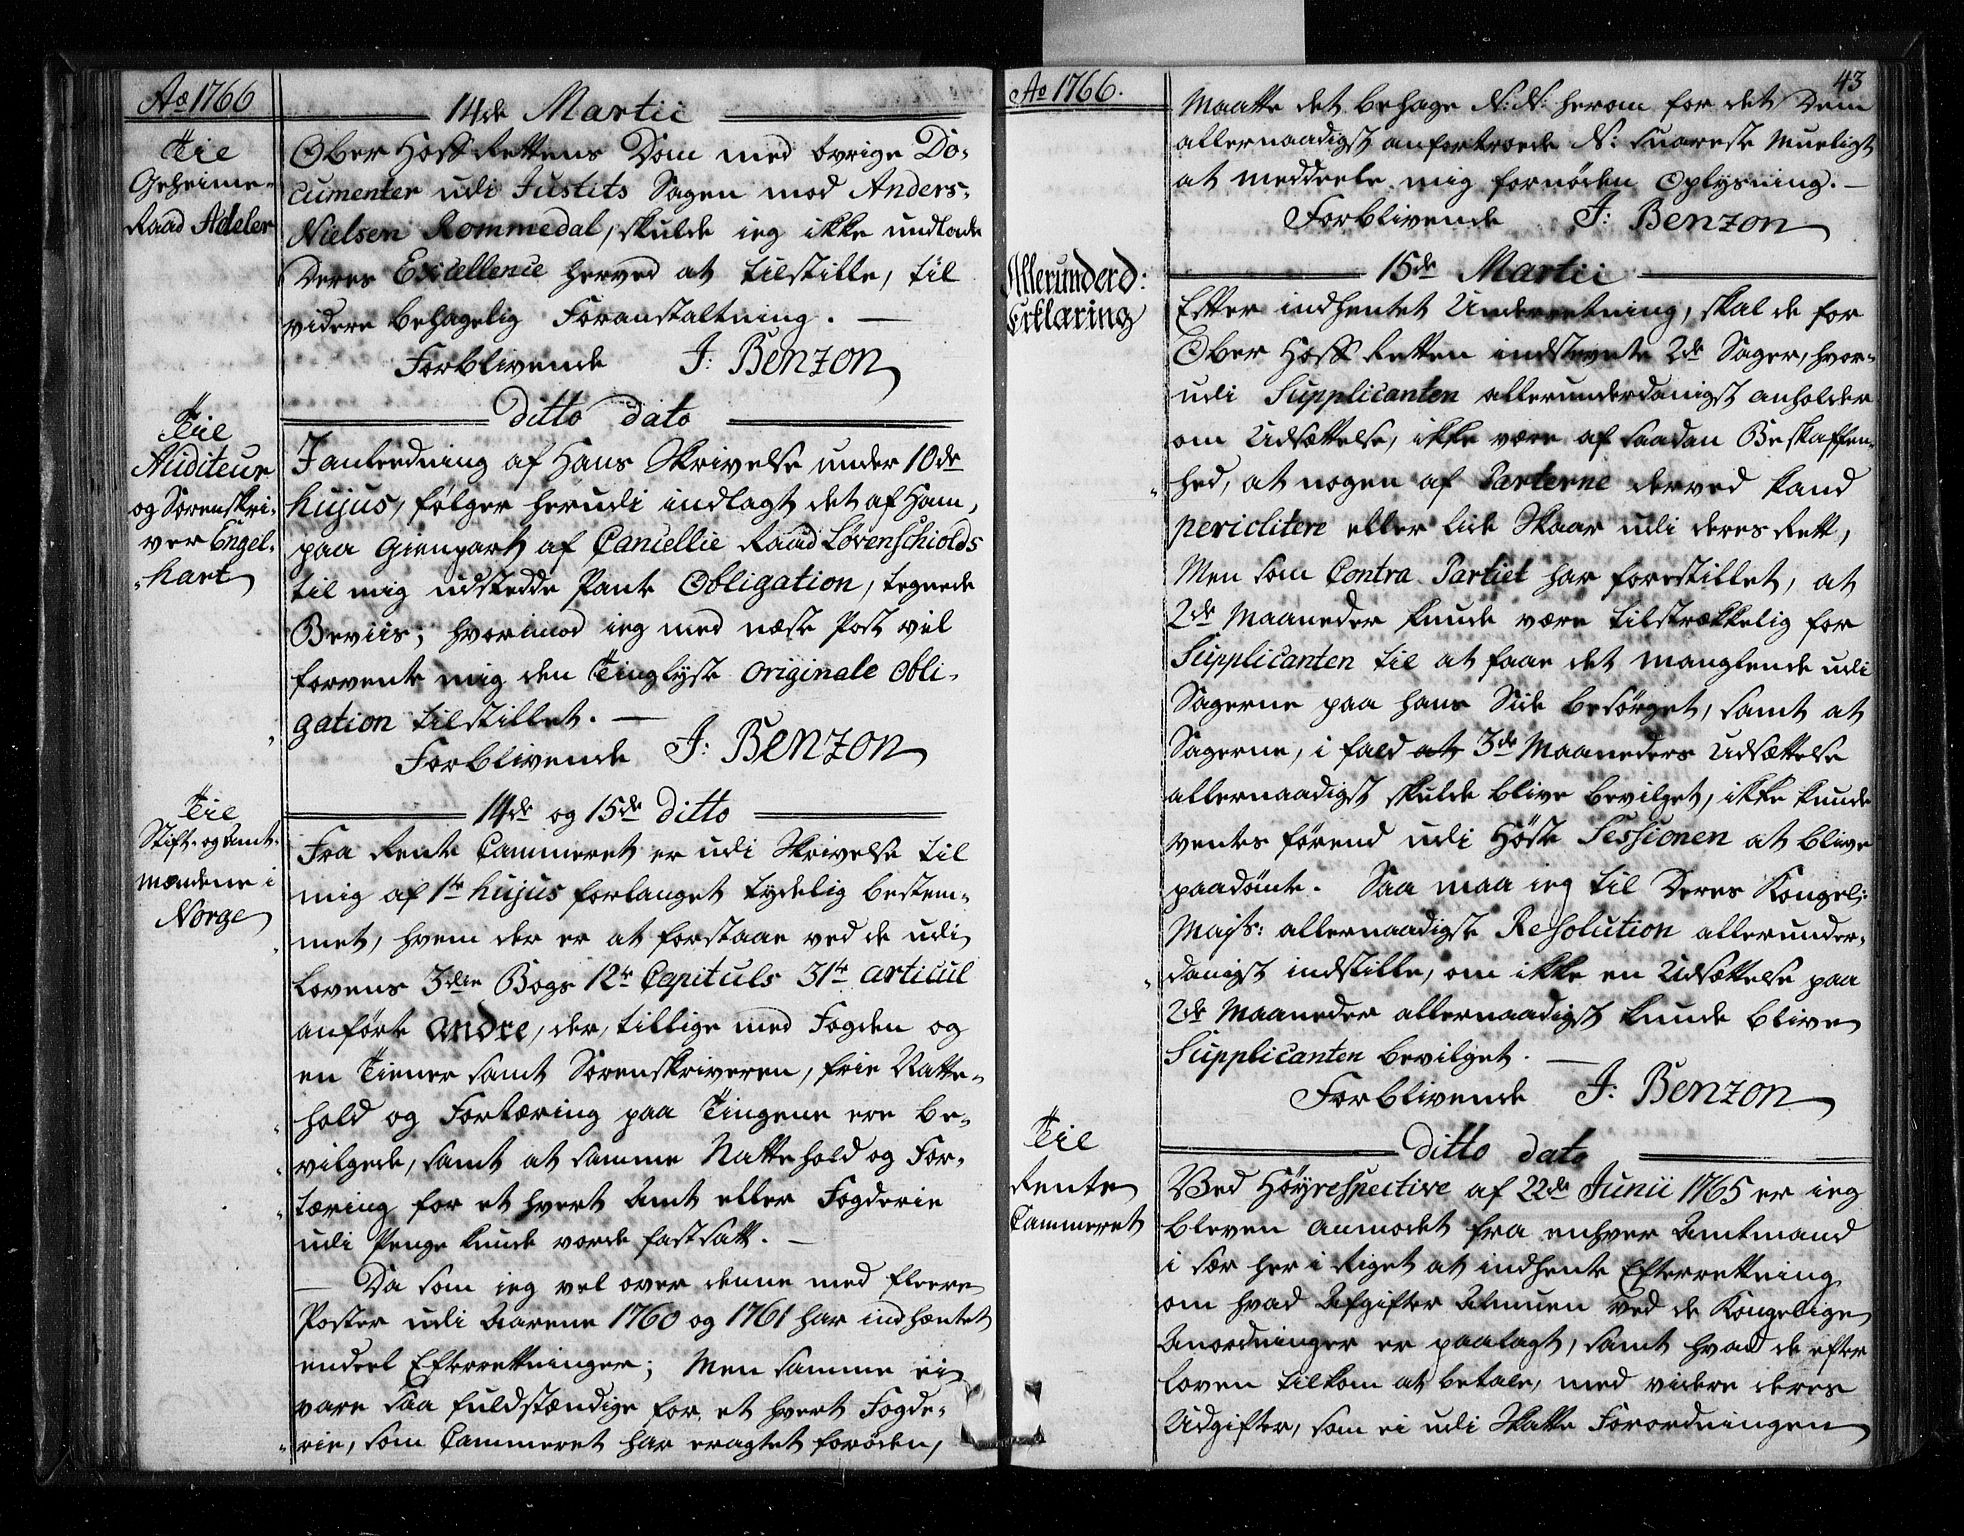 Ao 1766
14de Martii
Til
Geheime-
Raad Adeler
Ober Hoff Rettens Dom med övrige Do-
cumenter udi Justits Sagen mod Anders
Nielsen Rommedal, skulde ieg ikke undlade
Deres Excellence herved at tilstille, til
videre behagelig Foranstaltning. —
Forblivende J: Benzon
ditto dato
Til
Auditeur
og Sorenskri-
ver Engel-
hart
I anledning af Hans Skrivelse under 10de
hujus, fölger herudi indlagt det af Ham,
paa Gienpart af Cancellie Raad Lövenschiolds
til mig udstedde Pante Obligation, tegnede
Beviis; hvorimod ieg med næste Post vil
forvente mig den Tinglyste originale Obli-
gation tilstillet. —
Forblivende J: Benzon
14de og 15de ditto
Til
Stift- og Amt-
mændene i
Norge
Fra Rente Cammeret er udi Skrivelse til
mig af 1te hujus forlanget tydelig bestem-
met, hvem der er at forstaae ved de udi
Lovens 3die Bogs 12te Capituls 31te articul
anförte andre, der, tillige med Fogden og
en Tiener samt Sorenskriveren, frie Natte-
hold og Fortæring paa Tingene ere be-
vilgede, samt at samme Nattehold og For-
tæring for et hvert Amt eller Fogderie
udi Penge kunde vorde fastsatt. —
— Da som ieg vel over denne med fleere
Poster udi Aarene 1760 og 1761 har indhæntet
endeel Efterretninger; Men samme ei
vare saa fuldstændige for et hvert Fogde-
rie, som Cammeret har eragtet fornöden,
Ao 1766.
43
Maatte det behage N: N: herom for det Dem
allernaadigst anfortroede N: snareste Mueligst
at meddeele mig fornöden Oplysning. —
Forblivende J: Benzon
15de Martii
Allerunderd:
Erklæring
Efter indhentet Underretning, skal de for
Ober Hoff Retten indstevnte 2de Sager, hvor-
udi Supplicanten allerunderdanigst anholder
om Udsættelse, ikke være af saadan Beskaffen-
hed, at nogen af Parterne derved kand
periclitere eller lide Skaar udi deres Rett,
Men som Contra Partiet har forestillet, at
2de Maaneder kunde være tilstrækkelig for
Supplicanten til at faae det manglende udi
Sagerne paa hans Side besörget, samt at
Sagerne, i fald at 3de Maaneders Udsættelse
allernaadigst skulde blive bevilget, ikke kunde
ventes förend udi Höste Sessionen at blive
paadömte. Saa maa ieg til Deres Kongel:
Majts: allernaadigste Resolution allerunder-
danigst indstille, om ikke en Udsættelse paa
2de Maaneder allernaadigst kunde blive
Supplicanten bevilget. —
Forblivende J: Benzon
ditto dato
Til
Rente
Cammeret
Ved Höyrespective af 22de Junii 1765 er ieg
bleven anmodet fra enhver Amtmand
i sær her i Riget at indhente Efterretning
om hvad Afgifter Almuen ved de Kongelige
Anordninger er paalagt, samt hvad de efter
Loven tilkom at betale, med videre deres
Udgifter, som ei udi Skatte Forordningen